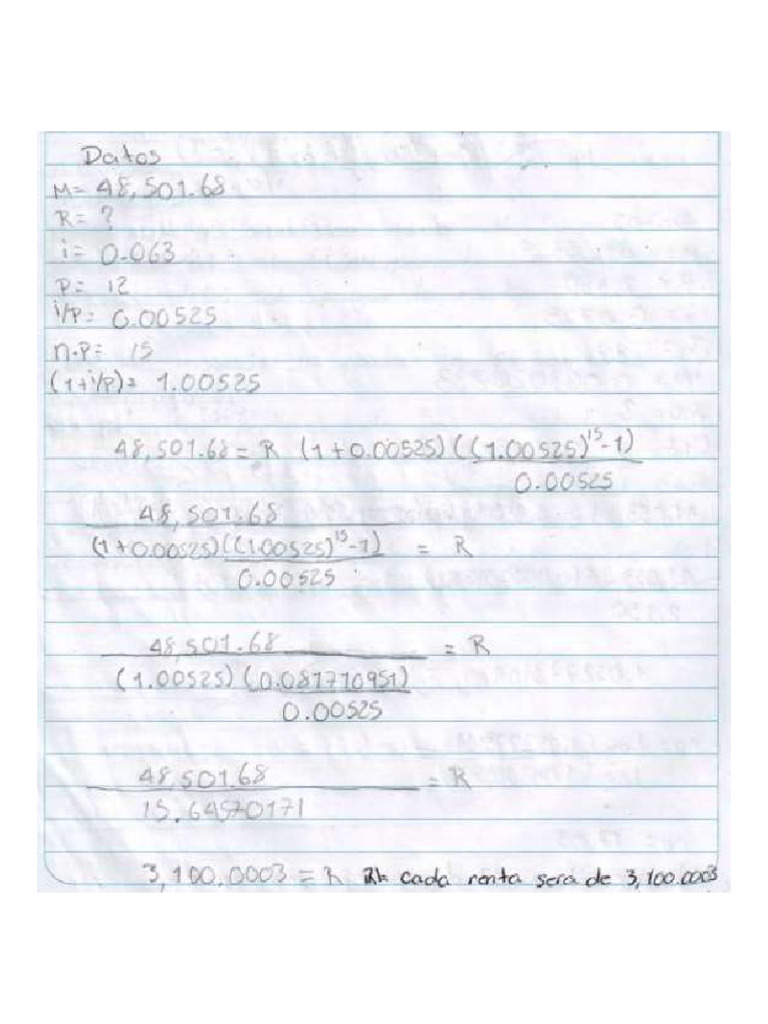 Datos
M= 48,501.68
R= ?
i= 0.063
P= 12
i/P= 0.00525
n·P= 15
(1+i/P)= 1.00525
48,501.68 = R (1+0.00525) ((1.00525)^15 -1)
0.00525
48,501.68
(1+0.00525)((1.00525)^15 -1) = R
0.00525
48,501.68 = R
(1.00525) (0.081710951)
0.00525
48,501.68 = R
15.64570171
3,100.0003 = R R= cada renta sera de 3,100.0003